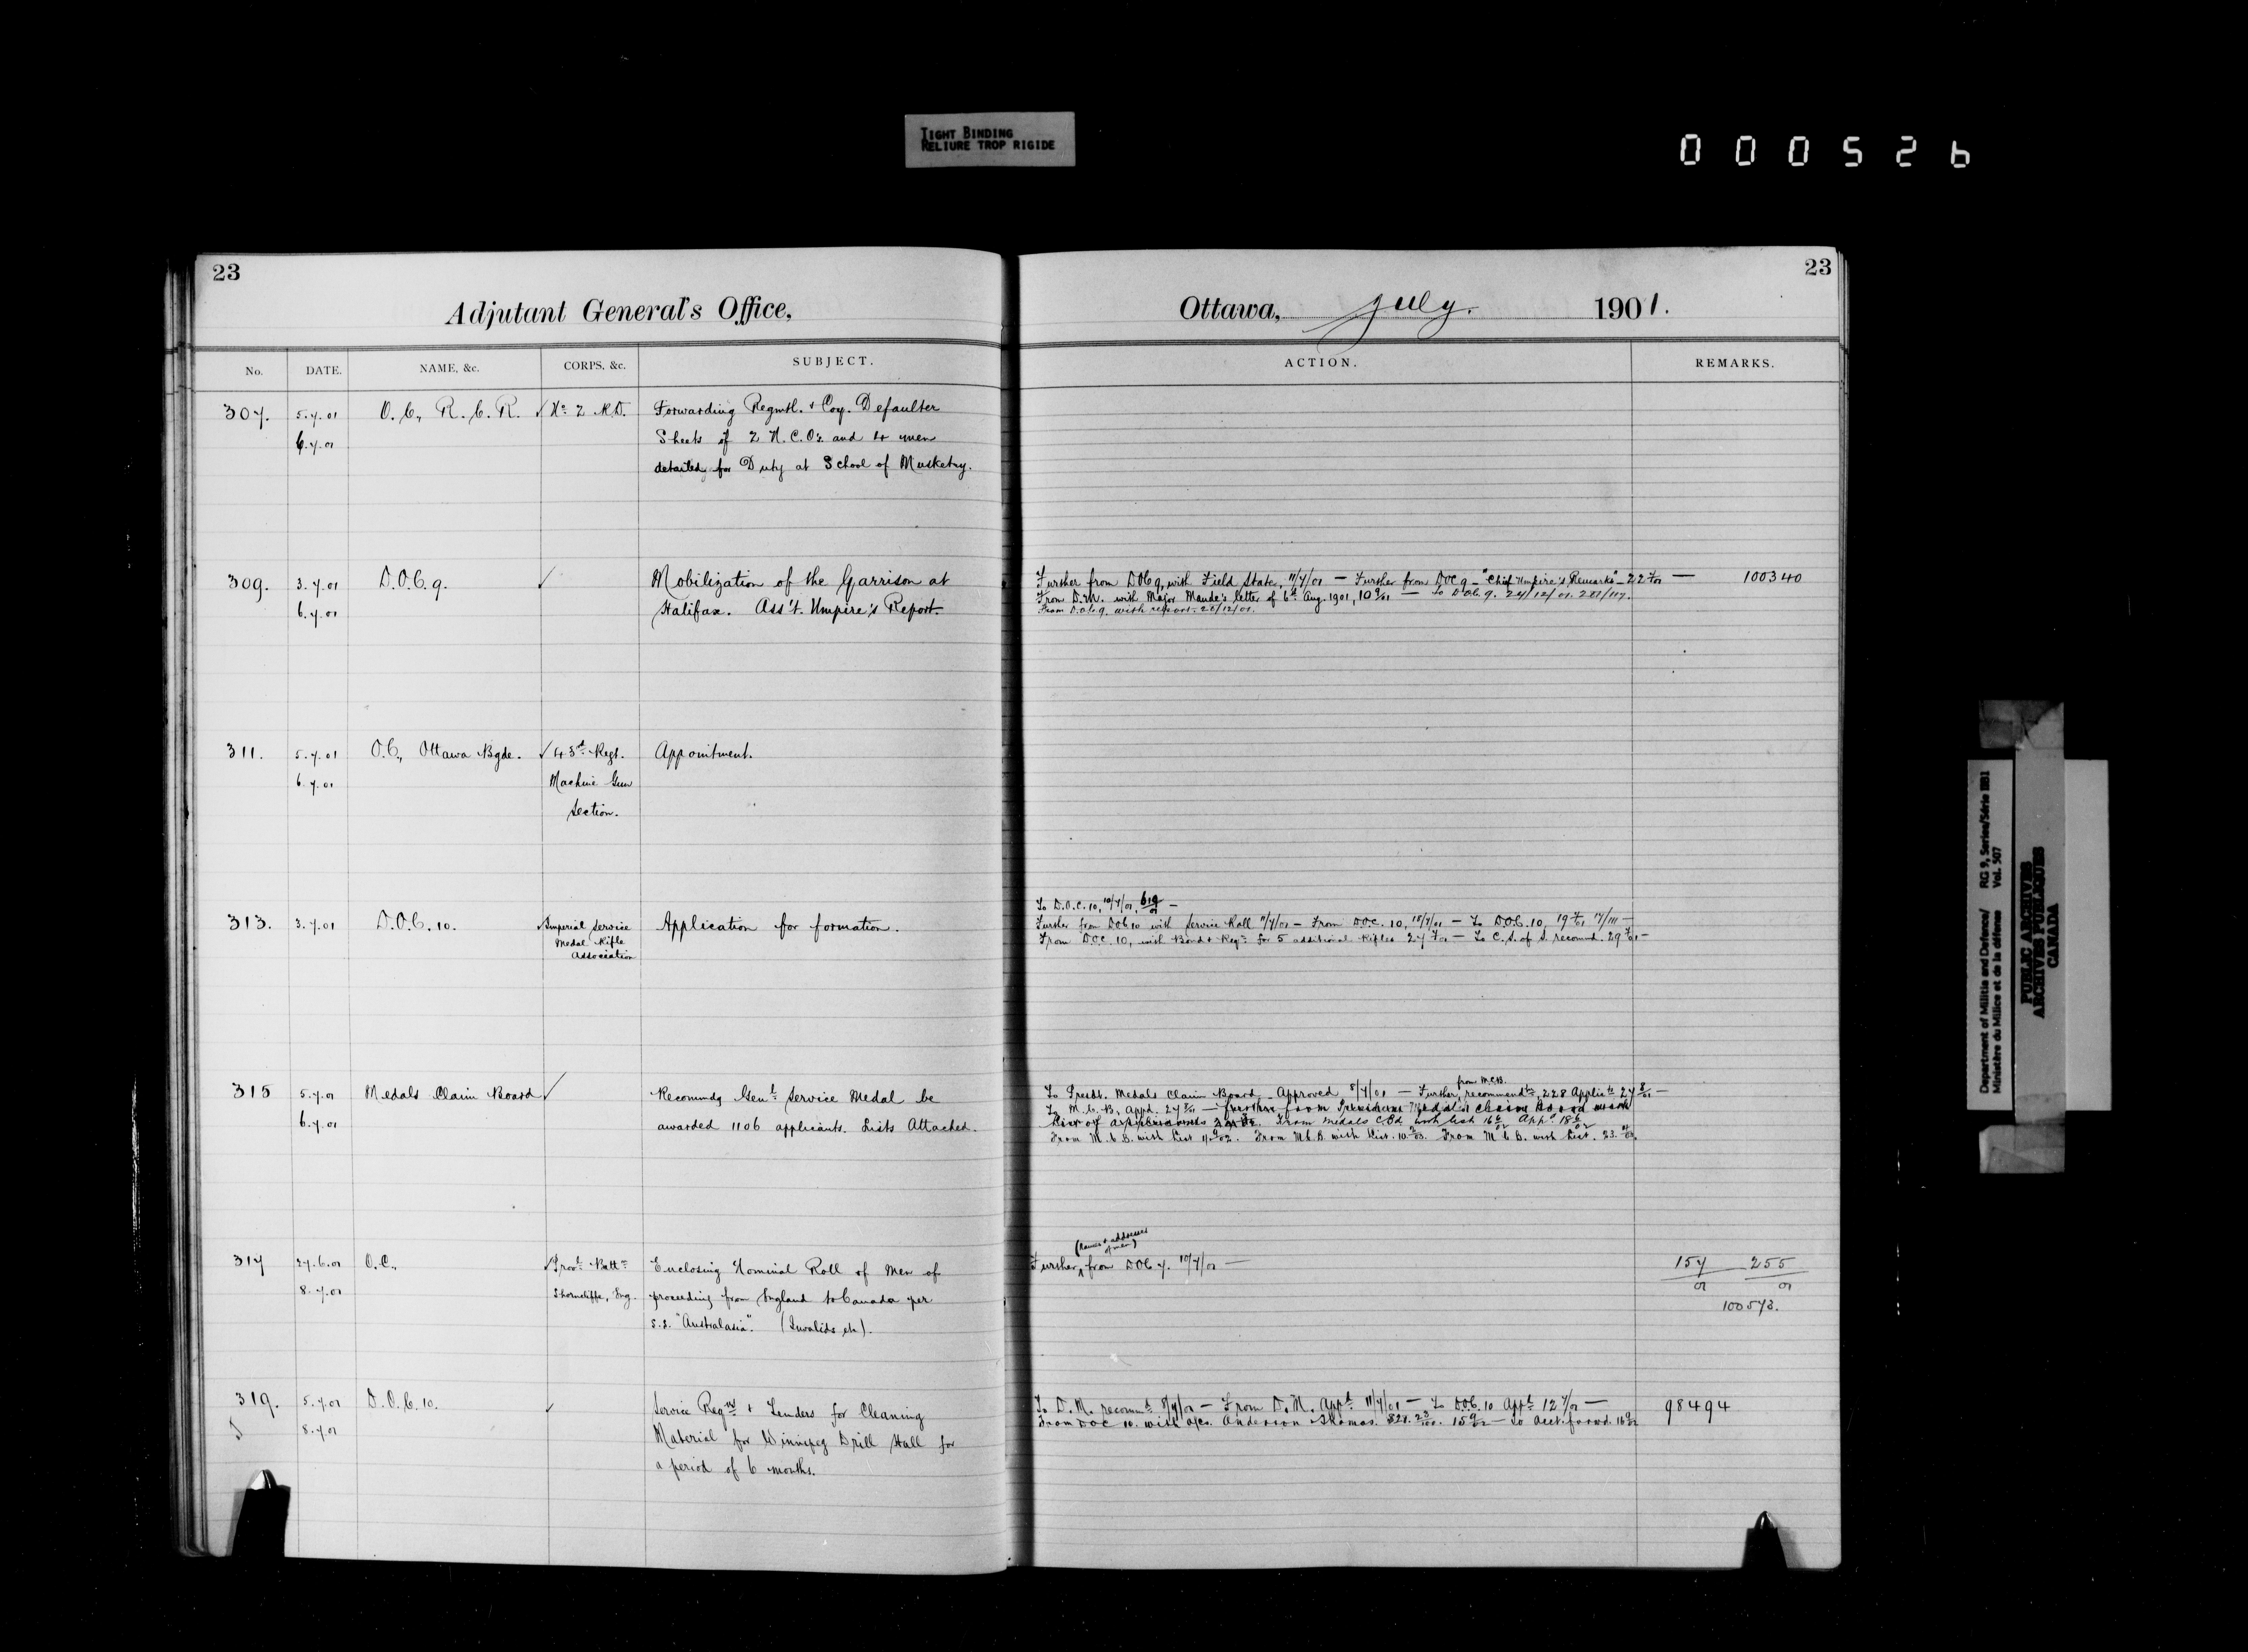 TIGHT BINDING
RELIURE TROP RIGIDE
000526
23
Adjutant General's Office,
No. DATE. NAME, &c. CORPS, &c. SUBJECT.
307. 5.7.01 O.C., R.C.R. ✓ No 2 R.D. Forwarding Regmtl. & Coy. Defaulter
6.7.01 Sheets of 2 N.C.O's. and 4 men
detailed for Duty at School of Musketry.
309. 3.7.01 D.O.C. 9. ✓ Mobilization of the Garrison at
6.7.01 Halifax. Ass't. Umpire's Report.
311. 5.7.01 O.C., Ottawa Bgde. ✓ 43rd Regt. Appointment.
6.7.01 Machine Gun
Section.
313. 3.7.01 D.O.C. 10. Imperial Service Application for formation.
Medal Rifle
Association
315 5.7.01 Medals Claim Board ✓ Recommdg Genl Service Medal be
6.7.01 awarded 1106 applicants. Lists Attached.
317 27.6.01 O.C., ✓ Provl Battn Enclosing Nominal Roll of Men of
8.7.01 Shorncliffe, Eng. proceeding from England to Canada per
s.s. "Australasia". (Invalids etc).
319. 5.7.01 D.O.C. 10. ✓ Service Reqns + Tenders for Cleaning
8.7.01 Material for Winnipeg Drill Hall for
a period of 6 months.
23
Ottawa, July. 1901.
ACTION. REMARKS.
Further from DOC 9, with Field State, 11/7/01 — Further from DOC 9 — "Chief Umpire's Remarks" — 22 7/01 — 100340
From D.M. with Major Maude's letter of 6th Aug. 1901, 10 9/01 — To D.O.C. 9. 24/12/01.
From D.O.C. 9, with report. 28/12/01.
To D.O.C. 10, 10/7/01, 619/01 —
Further from DOC 10 with Service Roll 11/7/01 — From DOC. 10, 15/7/01 — To DOC. 10, 19 7/01 17/111 —
From DOC. 10, with Bond + Reqn for 5 additional Rifles 27 7/01 — To C.S. of S. recomd. 29 7/01 —
from M.C.B.
To Presdt. Medals Claim Board, Approved 8/7/01 — Further, recommendtn 228 Applicts 27 8/01 —
To M.C.B, Appd. 27 8/01 — further from President Medal Claim Board with
List of applications From Medals C.Bd. with list
From M.C.B. with List From M.C.B. with List. From M.C.B. with List.
(Names + addresses
of men)
Further, from DOC 7. 10/7/01 — 157/01 255/01
100573.
To D.M. recommd 8/7/01 — From D.M. Appd 11/7/01 — To DOC. 10 Appd 12 7/01 — 98494
From DOC 10. with a/cs. Anderson & Thomas. — To Acct. forwd.
Department of Militia and Defence/ RG 9, Series/Série IIB1
Ministère du Milice et de la défense Vol. 507
PUBLIC ARCHIVES
ARCHIVES PUBLIQUES
CANADA